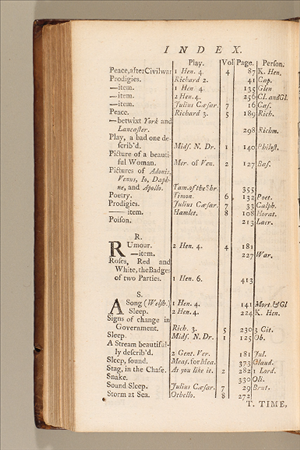 INDEX.
Play. Vol Page. Person.
Peace, after Civil war 1 Hen. 4 4 87 K. Hen.
Prodigies. Richard 2. 41 Cap.
—item. 1 Hen 4 135 Glen
—item. 2 Hen. 4. 256 Cl. and Gl.
—item. Julius Cæsar 7 16 Cas.
Peace. Richard 3. 5 189 Rich.
—betwixt York and
Lancaster. 298 Richm.
Play, a bad one de
scrib'd. Mids. N. Dr. 1 140 Philost.
Picture of a beauti
ful Woman. Mer. of Ven. 2 127 Bas.
Pictures of Adonis,
Venus, Io, Daph-
ne, and Apollo. Tam. of the Shr 355
Poetry. Timon 6 132 Poet.
Prodigies. Julius Cæsar 7 33 Calph.
—item. Hamlet. 8 108 Horat.
Poison. 213 Laer.
R.
Rumour. 2 Hen. 4. 4 181
—item. 227 War.
Roses, Red and
White, the Badges
of two Parties. 1 Hen. 6. 413
S.
A Song (Welsh) 1 Hen. 4. 141 Mort. & Gl
Sleep. 2 Hen. 4. 224 K. Hen.
Signs of change in
Government. Rich. 3. 5 230 3 Cit.
Sleep. Mids. N. Dr. 1 125 Ob.
A Stream beautiful-
ly describ'd. 2 Gent. Ver. 181 Jul.
Sleep, sound. Meas. for Mea. 375 Claud.
Stag, in the Chase. As you like it. 2 282 1 Lord.
Snake. 330 Oli.
Sound Sleep. Julius Cæsar 7 29 Brut.
Storm at Sea. Othello. 8 272
T. TIME,